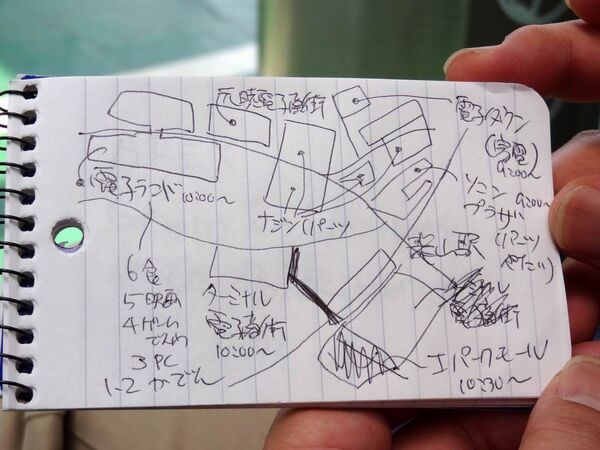 元暁電子商街
電子タウン
(家電)
9:00〜
電子ランド10:00〜
ナジン(パーツ)
ソニン
プラザ 9:00〜
(パーツ
龍山駅
6食
5映画
4ゲーム
3 PC
1-2 かでん
ターミナル
電子商街
10:00〜
電子商街
アイパークモール
10:30〜